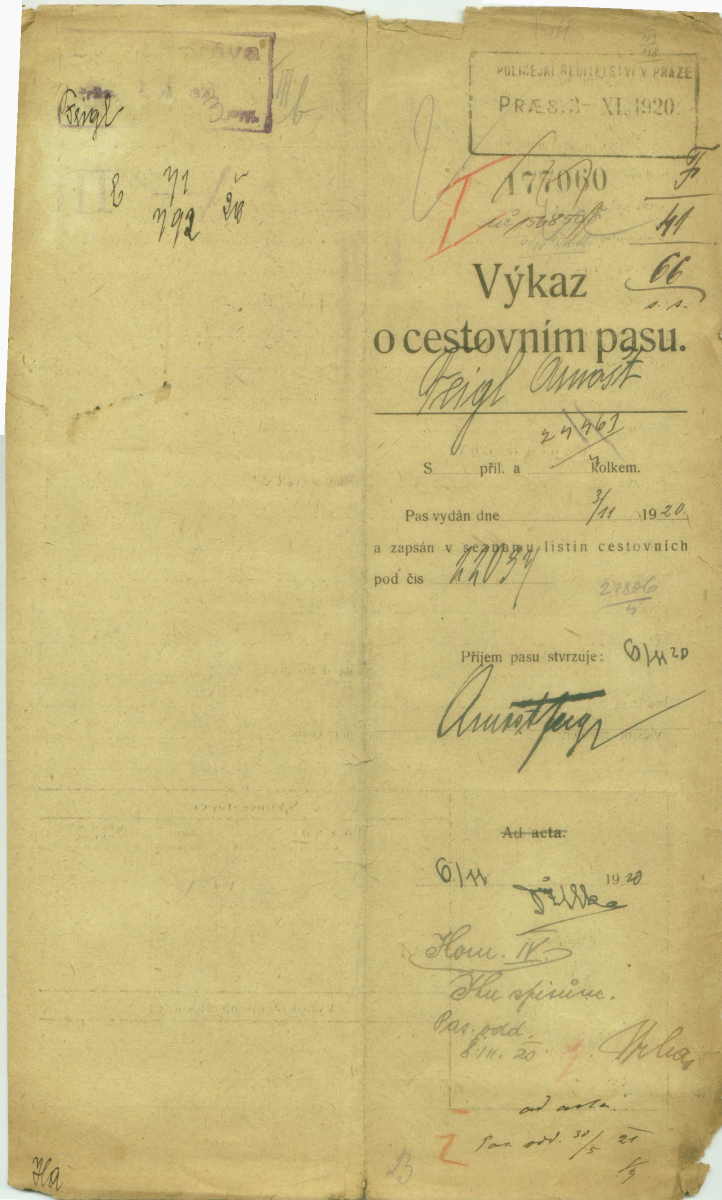 Feigl
b
E 71
792 20
POLICEJNÍ ŘEDITELSTVÍ V PRAZE
PRÆS. 3- XI. 1920
177060
F
41
66
Výkaz
o cestovním pasu.
Feigl Arnošt
S příl. a kolkem.
Pas vydán dne 3/11 1920
a zapsán v seznamu listin cestovních
pod čís 22037
27886
Příjem pasu stvrzuje: 6/11 20
Arnošt Feigl
Ad acta.
6/11 1920
Kom. IV.
Ku spisům.
Pas. odd.
ad acta.
Pas. odd. 30/5 21